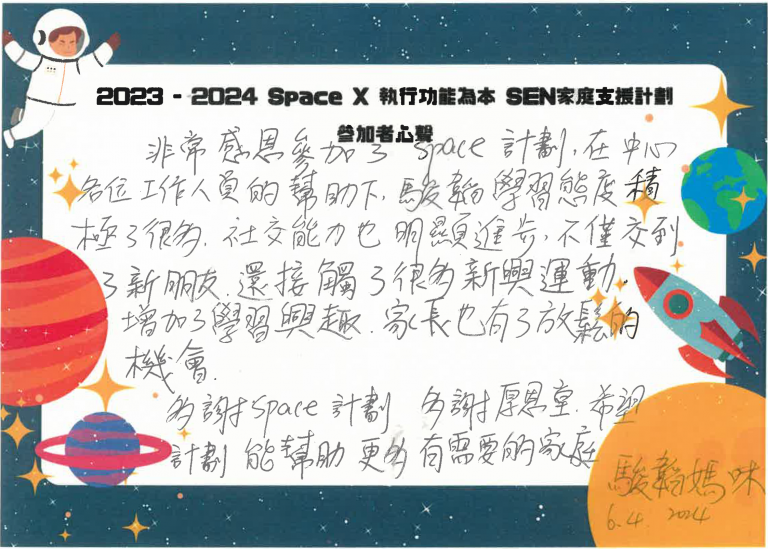 2023 - 2024 Space X 執行功能為本 SEN家庭支援計劃
參加者心聲
非常感恩參加了 Space 計劃,在中心
各位工作人員的幫助下,駿韜學習態度積
極了很多.社交能力也明顯進步,不僅交到
了新朋友.還接觸了很多新興運動.
增加了學習興趣.家長也有了放鬆的
機會.
多謝Space計劃 多謝厚恩堂.希望
計劃能幫助更多有需要的家庭
駿韜媽咪
6.4.2024